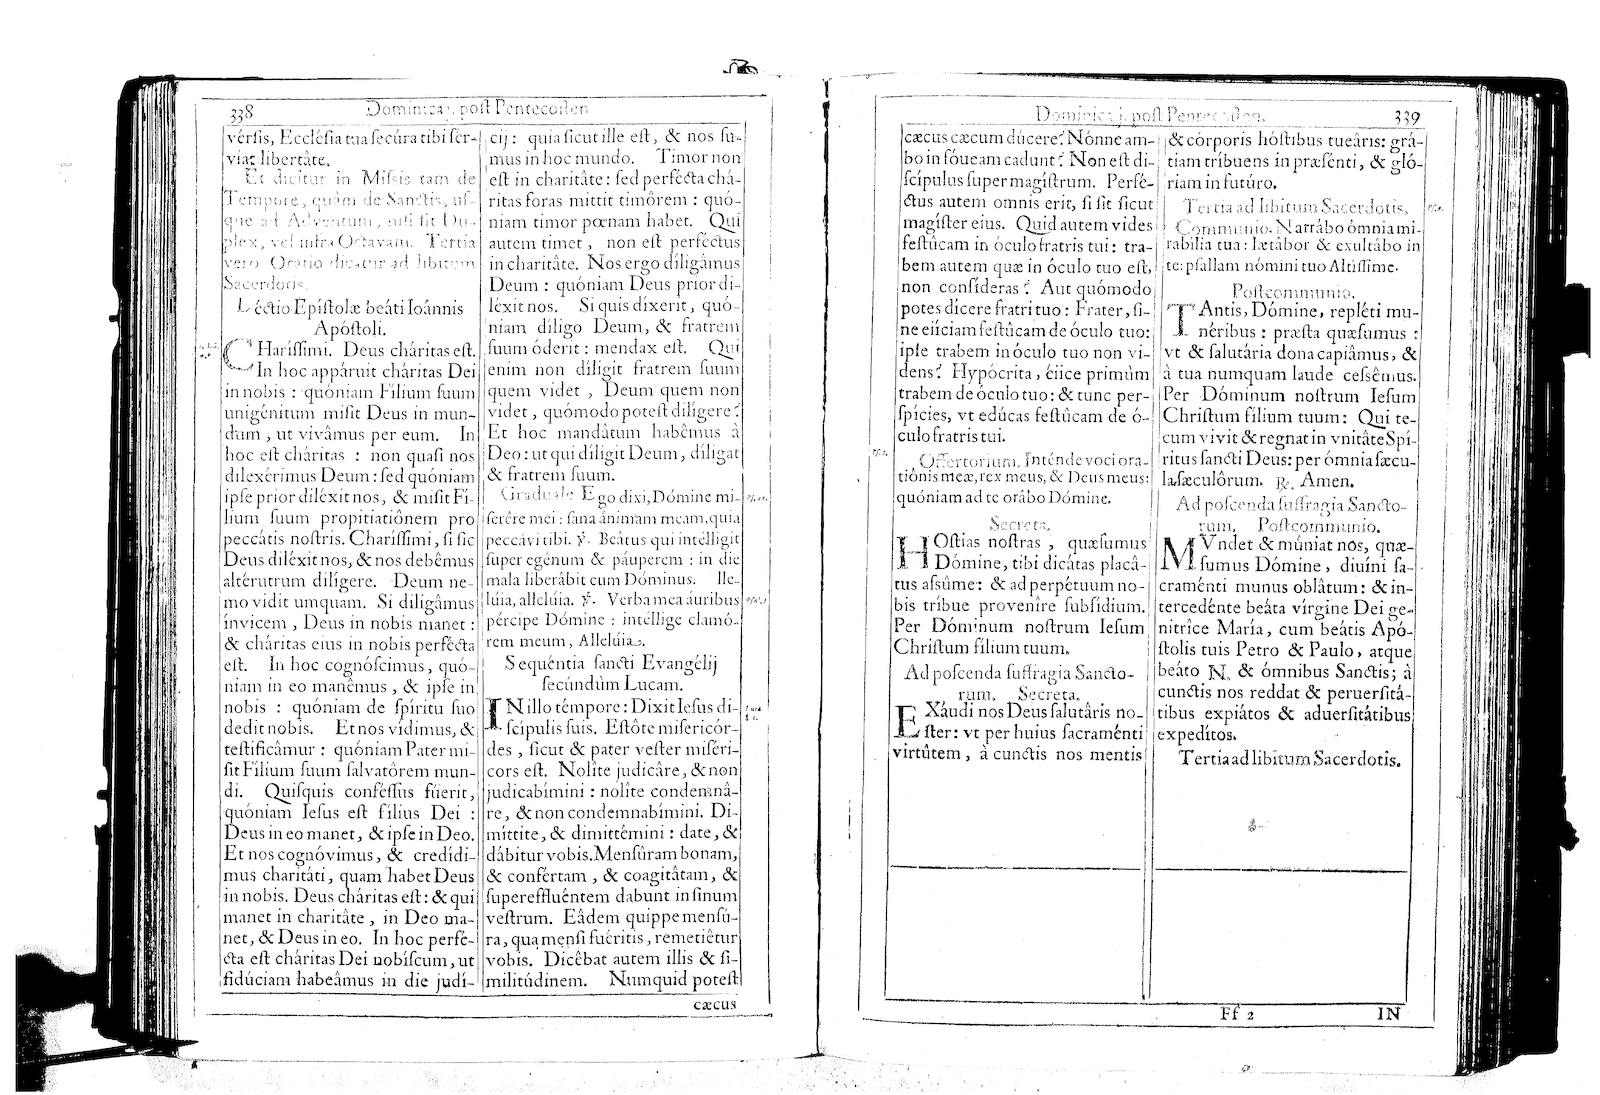 338
Dominica i. post Pentecosten
vérsis, Ecclésia tua secúra tibi sér-
viat libertâte.
Et dicitur in Missis tam de
Tempore, quàm de Sanctis, us-
que ad Adventum, nisi sit Du-
plex, vel infra Octavam. Tertia
vero Oratio dicatur ad libitum
Sacerdotis.
Léctio Epístolæ beáti Ioánnis
Apóstoli.
CHaríssimi. Deus cháritas est.
In hoc appáruit cháritas Dei
in nobis : quóniam Fílium suum
unigénitum misit Deus in mun-
dum , ut vivâmus per eum. In
hoc est cháritas : non quasi nos
dilexérimus Deum : sed quóniam
ipse prior diléxit nos, & misit Fí-
lium suum propitiatiônem pro
peccátis nostris. Charíssimi, si sic
Deus diléxit nos, & nos debêmus
altérutrum dilígere. Deum ne-
mo vidit umquam. Si diligâmus
ínvicem , Deus in nobis manet :
& cháritas eius in nobis perfécta
est. In hoc cognóscimus, quó-
niam in eo manêmus , & ipse in
nobis : quóniam de spíritu suo
dedit nobis. Et nos vídimus, &
testificâmur : quóniam Pater mi-
sit Fílium suum salvatôrem mun-
di. Quisquis conféssus fúerit,
quóniam Iesus est fílius Dei :
Deus in eo manet, & ipse in Deo.
Et nos cognóvimus , & credídi-
mus charitáti, quam habet Deus
in nobis. Deus cháritas est : & qui
manet in charitâte , in Deo ma-
net, & Deus in eo. In hoc perfé-
cta est cháritas Dei nobíscum, ut
fidúciam habeâmus in die judí-
cij : quia sicut ille est, & nos su-
mus in hoc mundo. Timor non
est in charitâte : sed perfécta chá-
ritas foras mittit timôrem : quó-
niam timor pœnam habet. Qui
autem timet , non est perféctus
in charitâte. Nos ergo diligâmus
Deum : quóniam Deus prior di-
léxit nos. Si quis díxerit , quó-
niam díligo Deum, & fratrem
suum óderit : mendax est. Qui
enim non díligit fratrem suum
quem videt , Deum quem non
videt, quómodo potest dilígere?
Et hoc mandâtum habêmus à
Deo : ut qui díligit Deum, díligat
& fratrem suum.
Graduale Ego dixi, Dómine mi-
serêre mei : sana ánimam meam, quia
peccávi tibi. ℣. Beátus qui intélligit
super egénum & páuperem : in die
mala liberábit eum Dóminus. lle-
lúia, allelúia. ℣. Verba mea áuribus
pércipe Dómine : intéllige clamó-
rem meum, Allelúia.
Sequéntia sancti Evangélij
secúndùm Lucam.
IN illo témpore : Dixit Iesus di-
scípulis suis. Estôte misericór-
des , sicut & pater vester miséri-
cors est. Nolîte judicâre, & non
judicabímini : nolîte condemnâ-
re, & non condemnabímini. Di-
míttite, & dimittémini : date, &
dábitur vobis. Mensûram bonam,
& confértam , & coagitâtam, &
supereffluéntem dabunt in sinum
vestrum. Eâdem quippe mensú-
ra, qua mensi fuéritis, remetiêtur
vobis. Dicêbat autem illis & si-
militúdinem. Numquid potest
cæcus
Dominica i. post Pentecosten.
339
cæcus cæcum dúcere? Nónne am-
bo in fóueam cadunt? Non est di-
scípulus super magístrum. Perfé-
ctus autem omnis erit, si sit sicut
magíster eius. Quid autem vides
festûcam in óculo fratris tui : tra-
bem autem quæ in óculo tuo est,
non consíderas? Aut quómodo
potes dícere fratri tuo : Frater, si-
ne eiíciam festûcam de óculo tuo :
ipse trabem in óculo tuo non vi-
dens? Hypócrita , éiice primùm
trabem de óculo tuo : & tunc per-
spícies, vt edúcas festûcam de ó-
culo fratris tui.
Offertorium. Inténde voci ora-
tiónis meæ, rex meus, & Deus meus:
quóniam ad te orábo Dómine.
Secreta.
HOstias nostras , quæsumus
Dómine, tibi dicátas placâ-
tus assûme : & ad perpétuum no-
bis tríbue provenîre subsídium.
Per Dóminum nostrum Iesum
Christum fílium tuum.
Ad poscenda suffragia Sancto-
rum, Secreta.
EXáudi nos Deus salutâris no-
ster : vt per huius sacraménti
virtûtem , à cunctis nos mentis
& córporis hóstibus tueâris : grá-
tiam tríbuens in præsénti, & gló-
riam in futúro.
Tertia ad libitum Sacerdotis.
Communio. Narrábo ómnia mi-
rabília tua : lætábor & exultábo in
te: psallam nómini tuo Altíssime.
Postcommunio.
TAntis, Dómine, repléti mu-
néribus : præsta quæsumus :
vt & salutária dona capiâmus, &
à tua numquam laude cessêmus.
Per Dóminum nostrum Iesum
Christum fílium tuum : Qui te-
cum vivit & regnat in vnitâte Spí-
ritus sancti Deus: per ómnia sæcu-
la sæculôrum. ℟. Amen.
Ad poscenda suffragia Sancto-
rum, Postcommunio.
MVndet & múniat nos, quæ-
sumus Dómine , divíni sa-
craménti munus oblâtum : & in-
tercedénte beáta vírgine Dei ge-
nitrîce María, cum beátis Apó-
stolis tuis Petro & Paulo, atque
beáto N. & ómnibus Sanctis; à
cunctis nos reddat & peruersitá-
tibus expiátos & aduersitátibus
expedítos.
Tertia ad libitum Sacerdotis.
Ff 2
IN